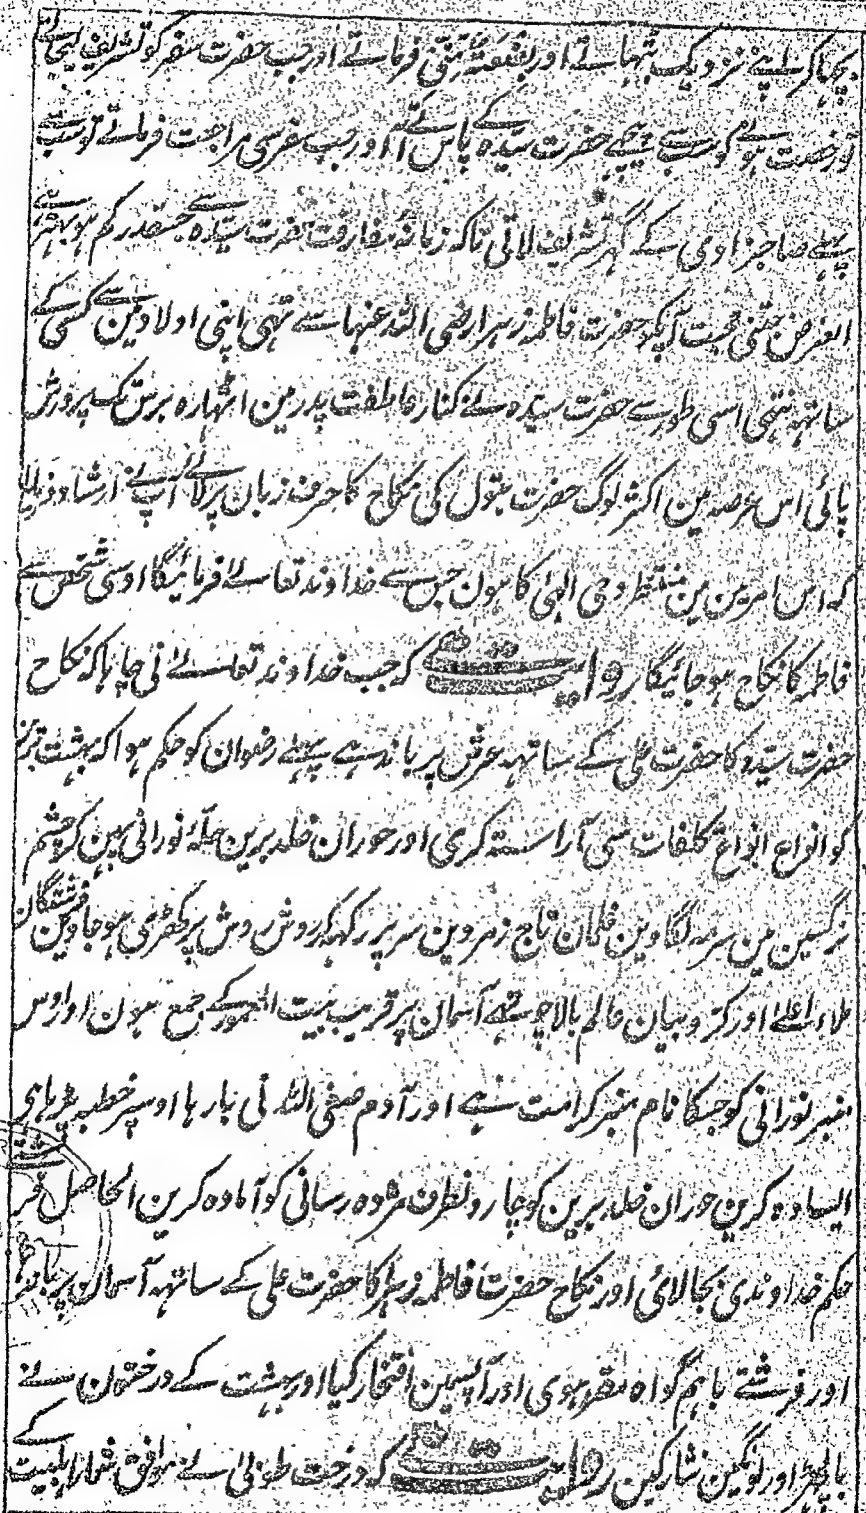 بچھا کر اپنے نزدیک بٹہاتے اور بشفقت تمنی فرماتے اور جب حضرت سفر کو تشریف لیجاتے
تو رخصت ہونے کو سب سے پیچھے حضرت سیدہ کے پاس آتے اور جب سفر سی مراجعت فرماتے تو سب سے
پہلے صاحبزادی کے گہر تشریف لاتی تاکہ زمانۂ مفارقت حضرت سیدہ سے جسقدر کم ہو بہتر ہے
الغرض جتنی محبت آپکو حضرت فاطمہ زہرا رضی اللہ عنہا سے تہی اپنی اولاد مین سے کسی کے
ساتہہ نتہی اسی طور سے حضرت سیدہ نے کنار عاطفت پدر مین اٹہارہ برس تک پرورش
پائی اس عرصہ مین اکثر لوگ حضرت بتول کی نکاح کا حرف زبان پر لائے آپ نے ارشاد فرمایا
کہ اس امر مین مین منتظر وحی الہی کا ہون جس سے خداوند تعالے فرمائیگا اوسی شخص سے
فاطمہ کا نکاح ہو جائیگا روایت ہے کہ جب خداوند تعالے نی چاہا کہ نکاح
حضرت سیدہ کا حضرت علی کے ساتہہ عرش پر باندہے پہلے رضوان کو حکم ہوا کہ بہشت برین
کو انواع انواع تکلفات سی آراستہ کری اور حوران خلد برین حلۂ نورانی پہن کر چشم
نرگسین مین سرمہ لگاوین غلمان تاج زمردین سر پر رکہکر روش روش پر کھڑی ہو جاوین فرشتگان
ملاء اعلے اور کروبیان عالم بالا چوتھے آسمان پر قریب بیت المعمور کے جمع ہون اور اوس
منبر نورانی کو جسکا نام منبر کرامت ہے اور آدم صفی اللہ نی بارہا اوسپر خطبہ پڑہا ہی
ایستادہ کرین حوران خلد برین کو چارونطرف مژدہ رسانی کو آمادہ کرین الحاصل
حکم خداوندی بجا لائی اور نکاح حضرت فاطمہ زہرا کا حضرت علی کے ساتہہ آسمان پر باندہا
اور فرشتے باہم گواہ مقرر ہوی اور آپسمین افتخار کیا اور بہشت کے درختون نے
اور لونگین نثار کین روایت ہے کہ درخت طوبی نے موافق شمار اہلبیت کے